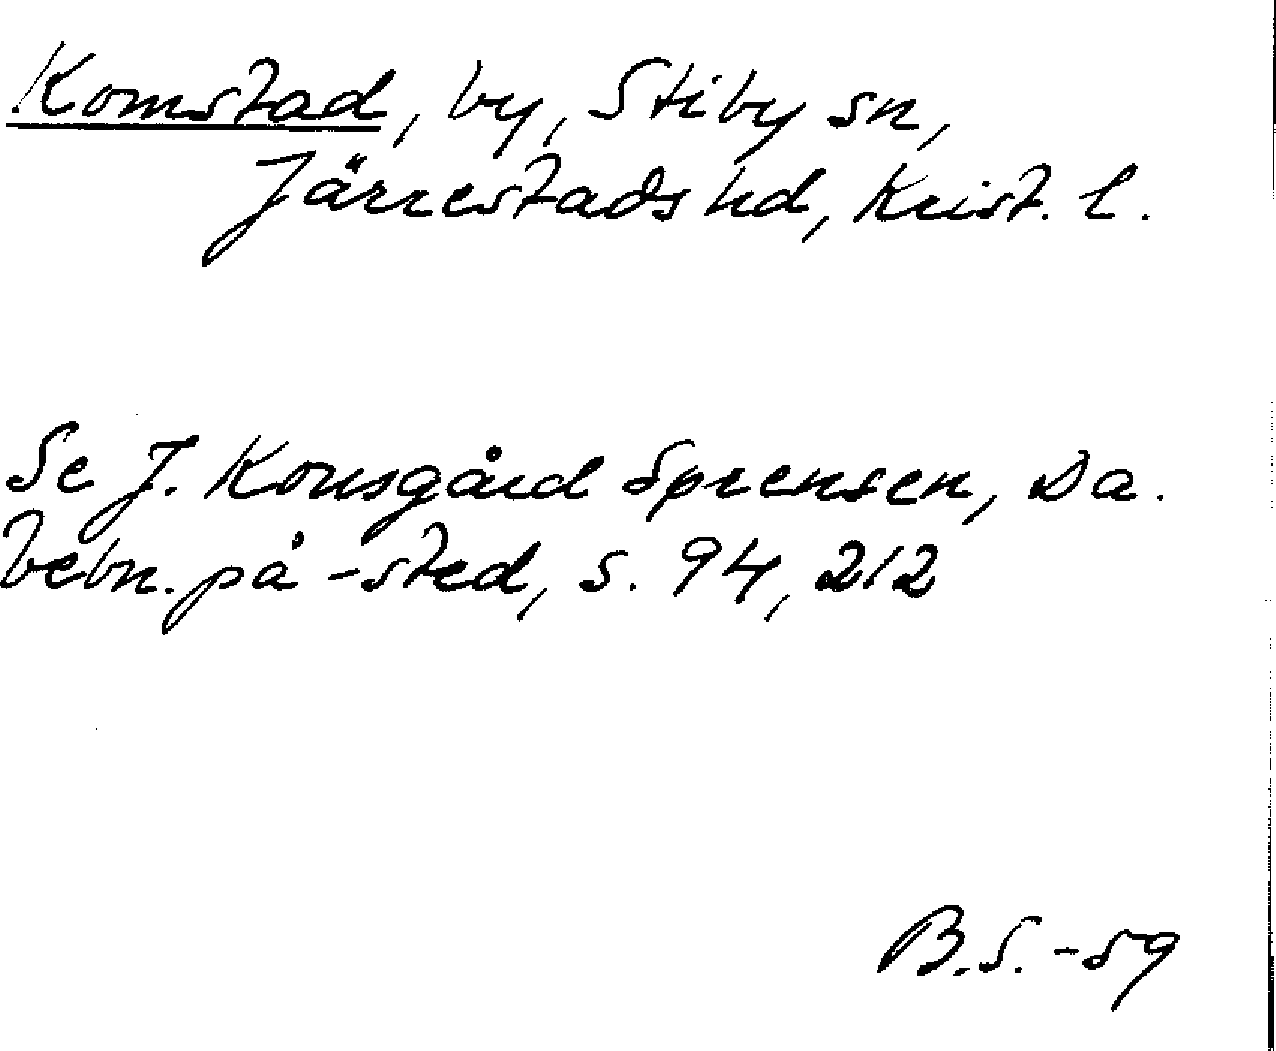 Komstad, by, Stiby sn,
Järrestads hd, Krist. l.
Se J. Kousgård Sørensen, Da.
bebn. på -sted, s. 94, 212
B.S. -59